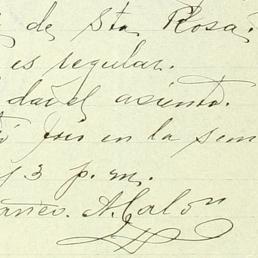 de Sta Rosa.
es regular.
dar el asiento.
en la sem
y 3 p.m.
A. Calon